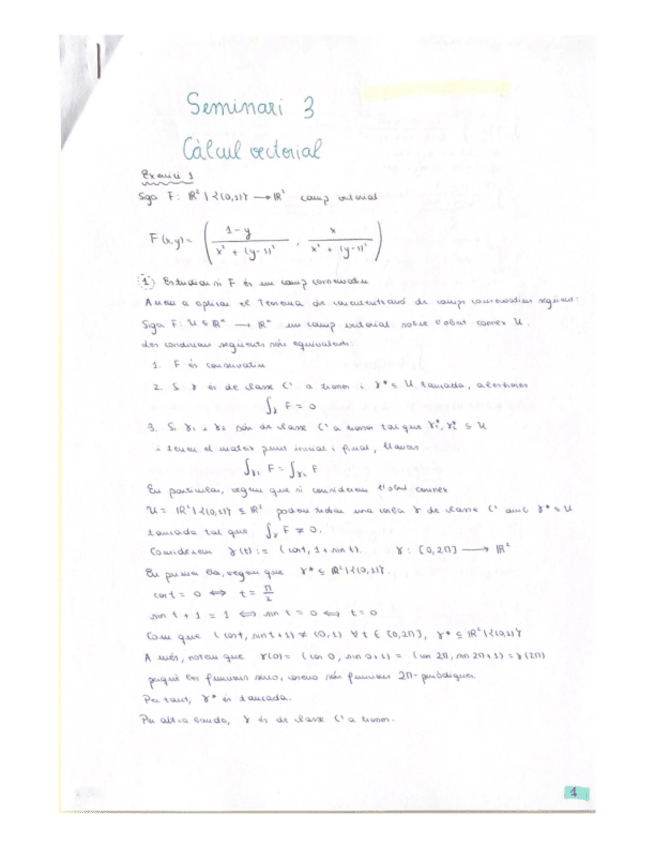 Seminari 3
Càlcul vectorial
Exercici 1
Siga F: ℝ² \ {(0,1)} → ℝ² camp vectorial
F(x,y) = ( (1-y)/(x² + (y-1)²) , x/(x² + (y-1)²) )
1) Estudiau si F és un camp conservatiu
Anem a aplicar el Teorema de caracterització de camps conservatius següent:
Siga F: U ⊆ ℝⁿ → ℝⁿ un camp vectorial sobre l'obert connex U.
Les condicions següents són equivalents:
1. F és conservatiu
2. Si γ és de classe C¹ a trossos i γ* ⊆ U tancada, aleshores
∫γ F = 0
3. Si γ₁ i γ₂ són de classe C¹ a trossos tal que γ₁*, γ₂* ⊆ U
i tenen el mateix punt inicial i final, llavors
∫γ₁ F = ∫γ₂ F
En particular, vegem que si considerem l'obert connex
U = ℝ² \ {(0,1)} ⊆ ℝ² podem trobar una corba γ de classe C¹ amb γ* ⊆ U
tancada tal que ∫γ F ≠ 0.
Considerem γ(t) := (cos t, 1 + sin t). γ: [0, 2π] → ℝ²
En primer lloc, vegem que γ* ⊆ ℝ² \ {(0,1)}.
cos t = 0 ⟺ t = π/2
sin t + 1 = 1 ⟺ sin t = 0 ⟺ t = 0
Com que (cos t, sin t + 1) ≠ (0,1) ∀ t ∈ [0, 2π], γ* ⊆ ℝ² \ {(0,1)}
A més, notem que γ(0) = (cos 0, sin 0 + 1) = (cos 2π, sin 2π + 1) = γ(2π)
perquè les funcions sinus, cosinus són funcions 2π-periòdiques.
Per tant, γ* és tancada.
Per altra banda, γ és de classe C¹ a trossos.
1